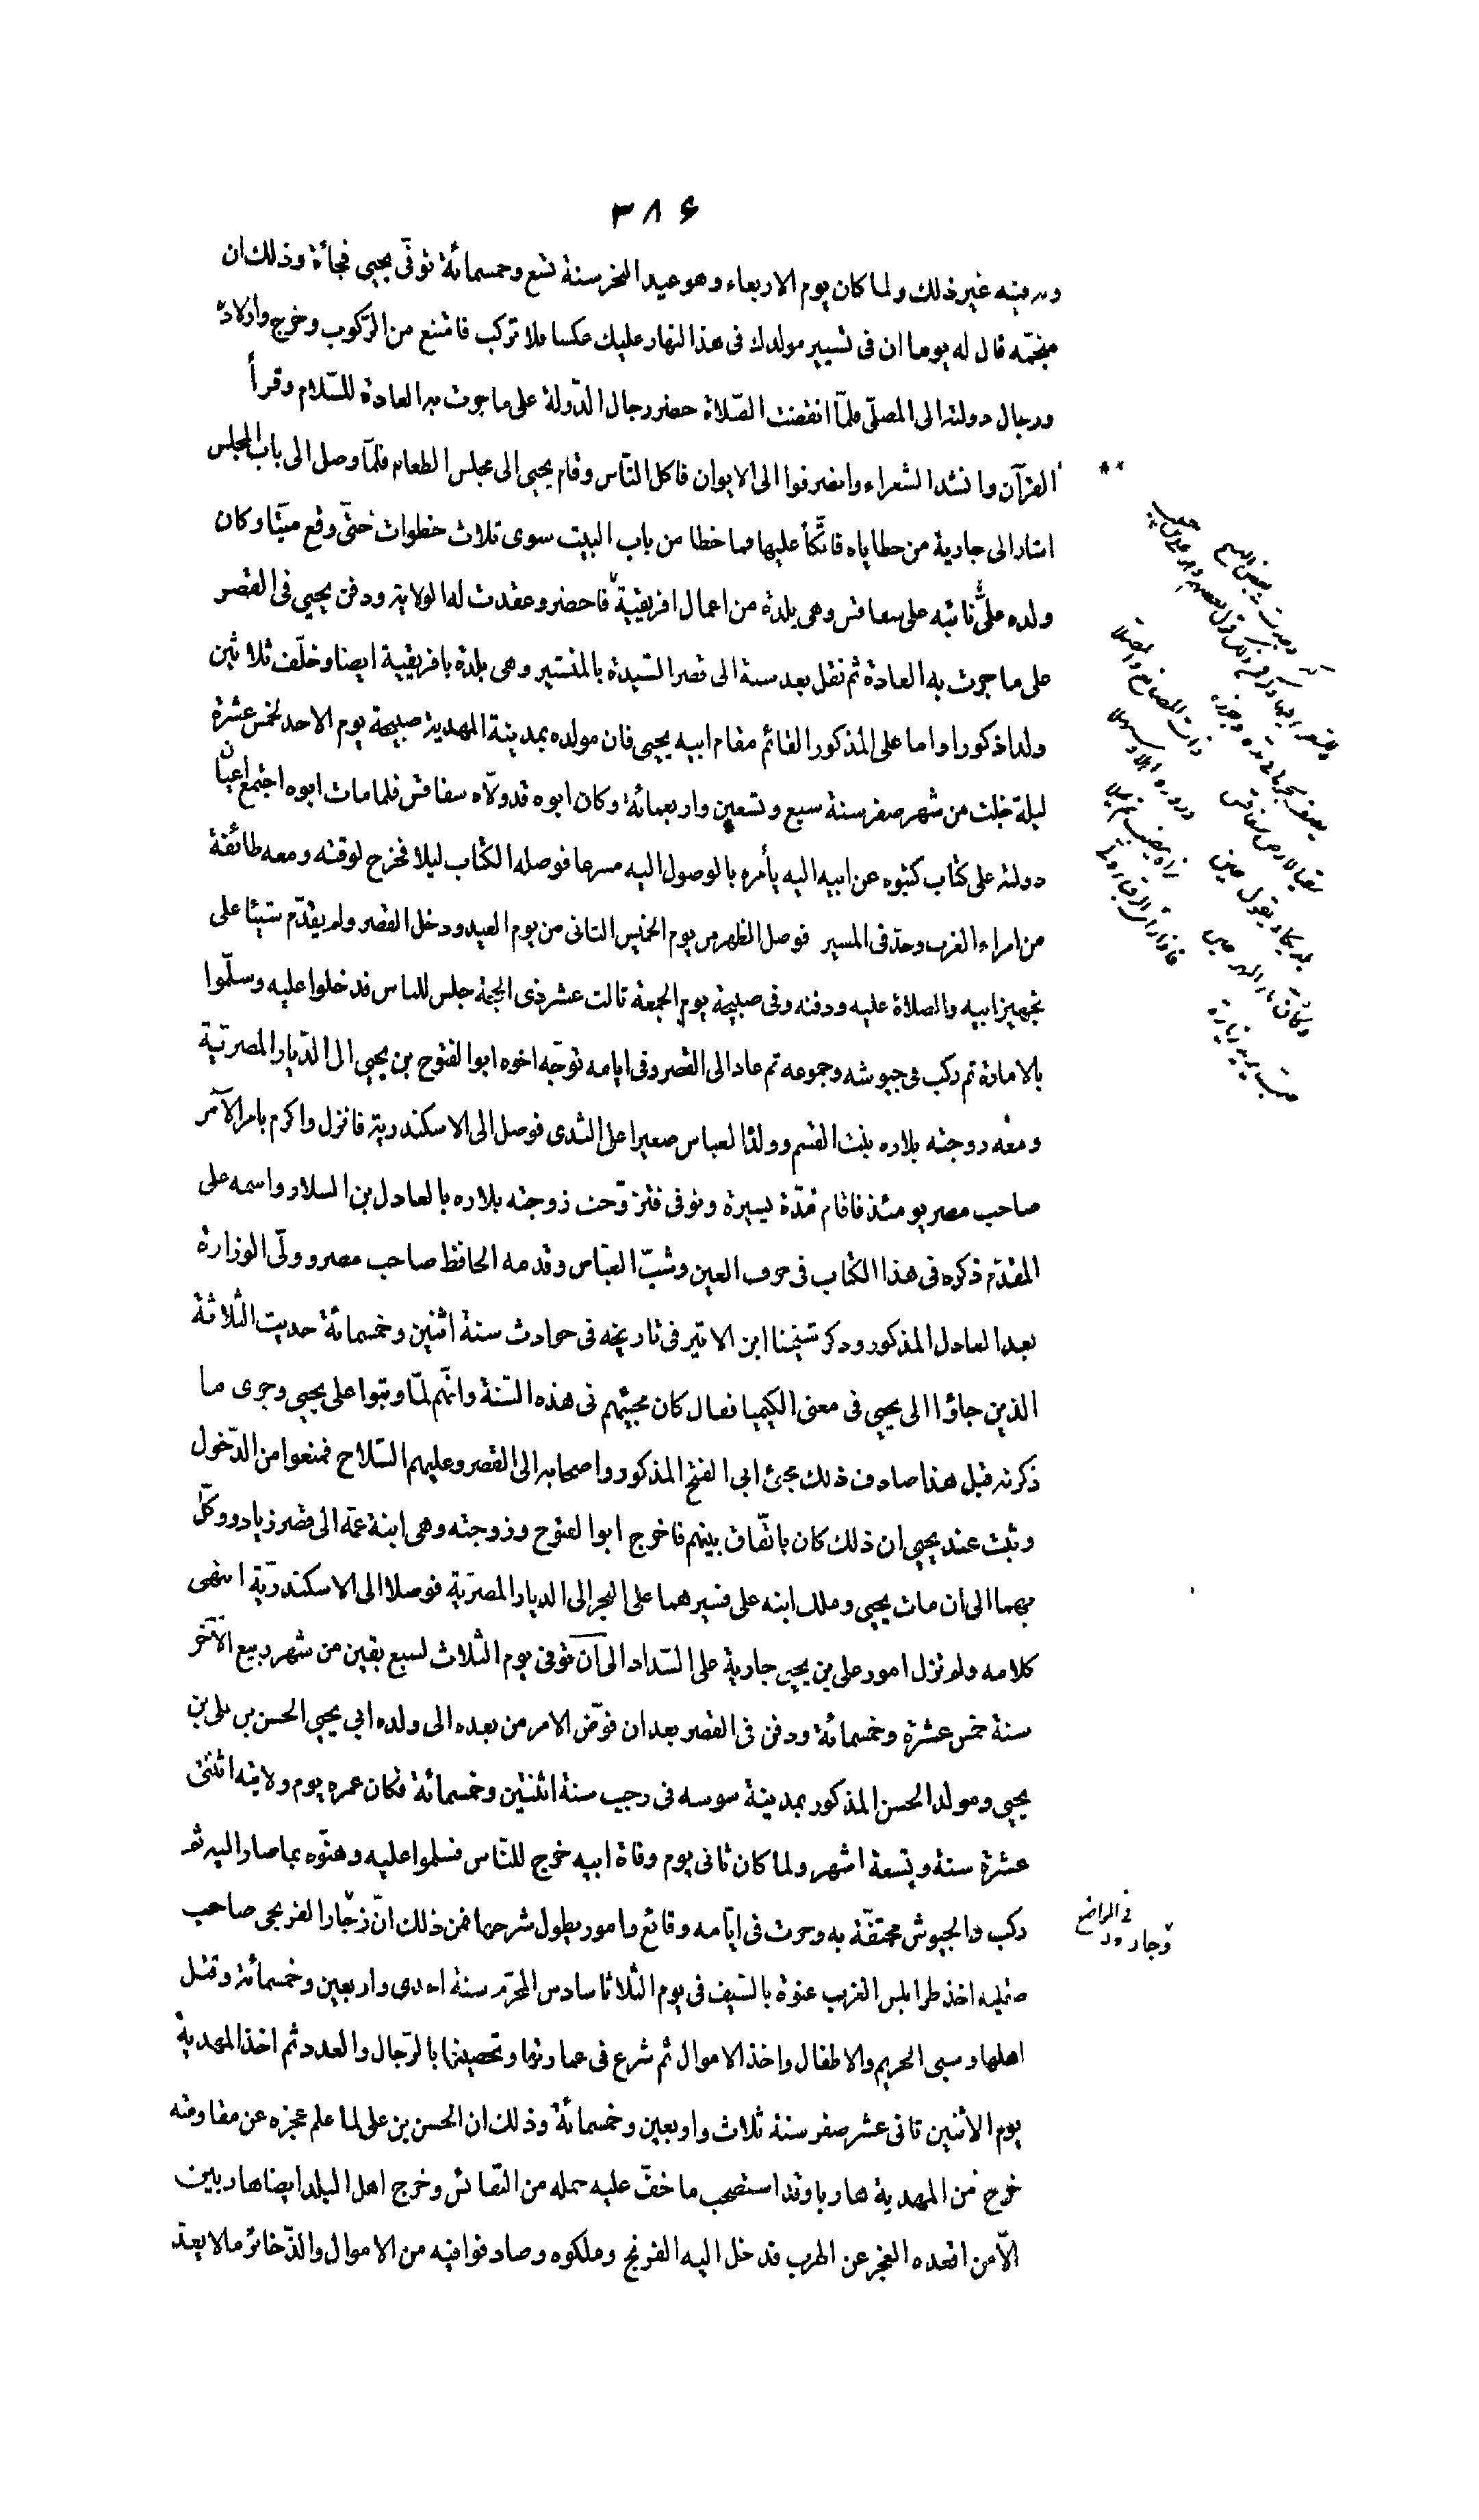 ٣٨۶
وله فيه غير ذلك ولما كان يوم الاربعاء وهو عيد النحر سنة تسع وخمسمائة توفّى يحيى فجأة وذلك ان
منجّمه قال له يوما ان فى تسيير مولدك فى هذا النهار عليك عكسا فلا تركب فامتنع من الرّكوب وخرج واولاده
ورجال دولته الى المصلّى فلمّا انقضت الصّلاة حضر رجال الدّولة على ما جرت به العادة للسّلام وقرأ
القرآن وانشد الشعراء وانصرفوا الى الايوان فاكل النّاس وقام يحيى الى مجلس الطعام فلمّا وصل الى باب المجلس
اشار الى جارية من حظاياه فاتّكأ عليها فما خطا من باب البيت سوى ثلاث خطوات حتّى وقع ميّتا وكان
ولده علىّ نائبه على سفاقس وهى بلدة من اعمال افريقيّة فاحضر وعقدت له الولاية ودفن يحيى فى القصر
على ما جرت به العادة ثم نقل بعد سنة الى قصر السّيدة بالمنستير وهى بلدة بافريقية ايضا وخلّف ثلاثين
ولدا ذكورا واما على المذكور القائم مقام ابيه يحيى فان مولده بمدينة المهدية صبيحة يوم الاحد لخمس عشرة
ليلة خلت من شهر صفر سنة سبع وتسعين واربعمائة وكان ابوه قد ولّاه سفاقس فلما مات ابوه اجتمع اعيان
دولته على كتاب كتبوه عن ابيه اليه يأمره بالوصول اليه مسرعا فوصله الكتاب ليلا فخرج لوقته ومعه طائفة
من امراء العرب وجدّ فى المسير فوصل الظهر من يوم الخميس الثانى من يوم العيد ودخل القصر ولم يقدّم شيئا على
تجهيز ابيه والصلاة عليه ودفنه وفى صبيحة يوم الجمعة ثالث عشر ذى الحجة جلس للناس فدخلوا عليه وسلّموا
بالامارة ثم ركب فى جيوشه وجموعه ثم عاد الى القصر وفى ايامه توجّه اخوه ابوالفتوح بن يحيى الى الدّيار المصريّة
ومعه زوجته بلاره بنت القسم وولد العباس صغيرا على الثدى فوصل الى الاسكندرية فانزل واكرم بامر الآمر
صاحب مصر يومئذ فاقام مدّة يسيرة وتوفى فتزوّجت زوجته بلاره بالعادل بن السلار واسمه على
المقدّم ذكره فى هذا الكتاب فى حرف العين وشبّ العبّاس وقدمه الحافظ صاحب مصر وولّى الوزارة
بعد العادل المذكور وذكر شيخنا ابن الاثير فى تاريخه فى حوادث سنة اثنين وخمسمائة حديث الثلاثة
الذين جاؤا الى يحيى فى معنى الكيميا فقال كان مجيئهم فى هذه السّنة وانّهم لمّا وثبوا على يحيى وجرى ما
ذكرته قبل هذا صادف ذلك مجئ ابى الفتح المذكور واصحابه الى القصر وعليهم السّلاح فمنعوا من الدّخول
وثبت عند يحيى ان ذلك كان باتّفاق بينهم فاخرج ابو الفتوح وزوجته وهى ابنة عمّه الى قصر زياد ووكّل
بهما الى ان مات يحيى وملك ابنه على فسيرهما على البحر الى الديار المصريّة فوصلا الى الاسكندريّة انتهى
كلامه ولم تزل امور على بن يحيى جارية على السّداد الى ان توفى يوم الثلاث لسبع بقين من شهر ربيع الآخر
سنة خمس عشرة وخمسمائة ودفن فى القصر بعد ان فوّض الامر من بعده الى ولده ابى يحيى الحسن بن على بن
يحيى ومولد الحسن المذكور بمدينة سوسه فى رجب سنة اثنتين وخمسمائة فكان عمره يوم ولايته اثنتى
عشرة سنة وتسعة اشهر ولما كان ثانى يوم وفاة ابيه خرج للنّاس فسلموا عليه وهنّوه بما صار اليه ثم
ركب والجيوش محتفّة به وجرت فى ايّامه وقائع وامور يطول شرحها فمن ذلك انّ زجّار الفرنجى صاحب
صقليه اخذ طرابلس الغرب عنوة بالسّيف فى يوم الثلاثا سادس المحرّم سنة احدى واربعين وخمسمائة وقتل
اهلها وسبى الحريم والاطفال واخذ الاموال ثم شرع فى عمارتها وتحصينها بالرّجال والعدد ثم اخذ المهدية
يوم الاثنين ثانى عشر صفر سنة ثلاث واربعين وخمسمائة وذلك ان الحسن بن على لما علم عجزه عن مقاومته
خرج من المهدية هاربا وقد استصحب ما خفّ عليه حمله من النّفائس وخرج اهل البلد ايضا هاربين
الّا من اقعده العجز عن الهرب فدخل اليه الفرنج وملكوه وصادفوا فيه من الاموال والذّخائر ما لا يعدّ
فى المواضع